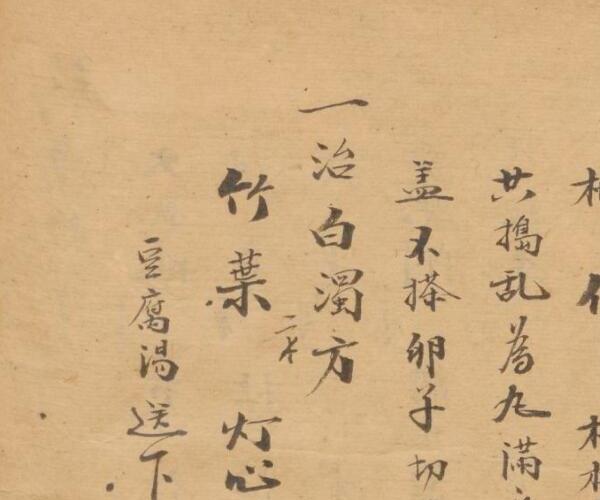 共搗乱為丸滿
盖不搽卵子切
一治白濁方
竹葉 二千 灯心
豆腐湯送下